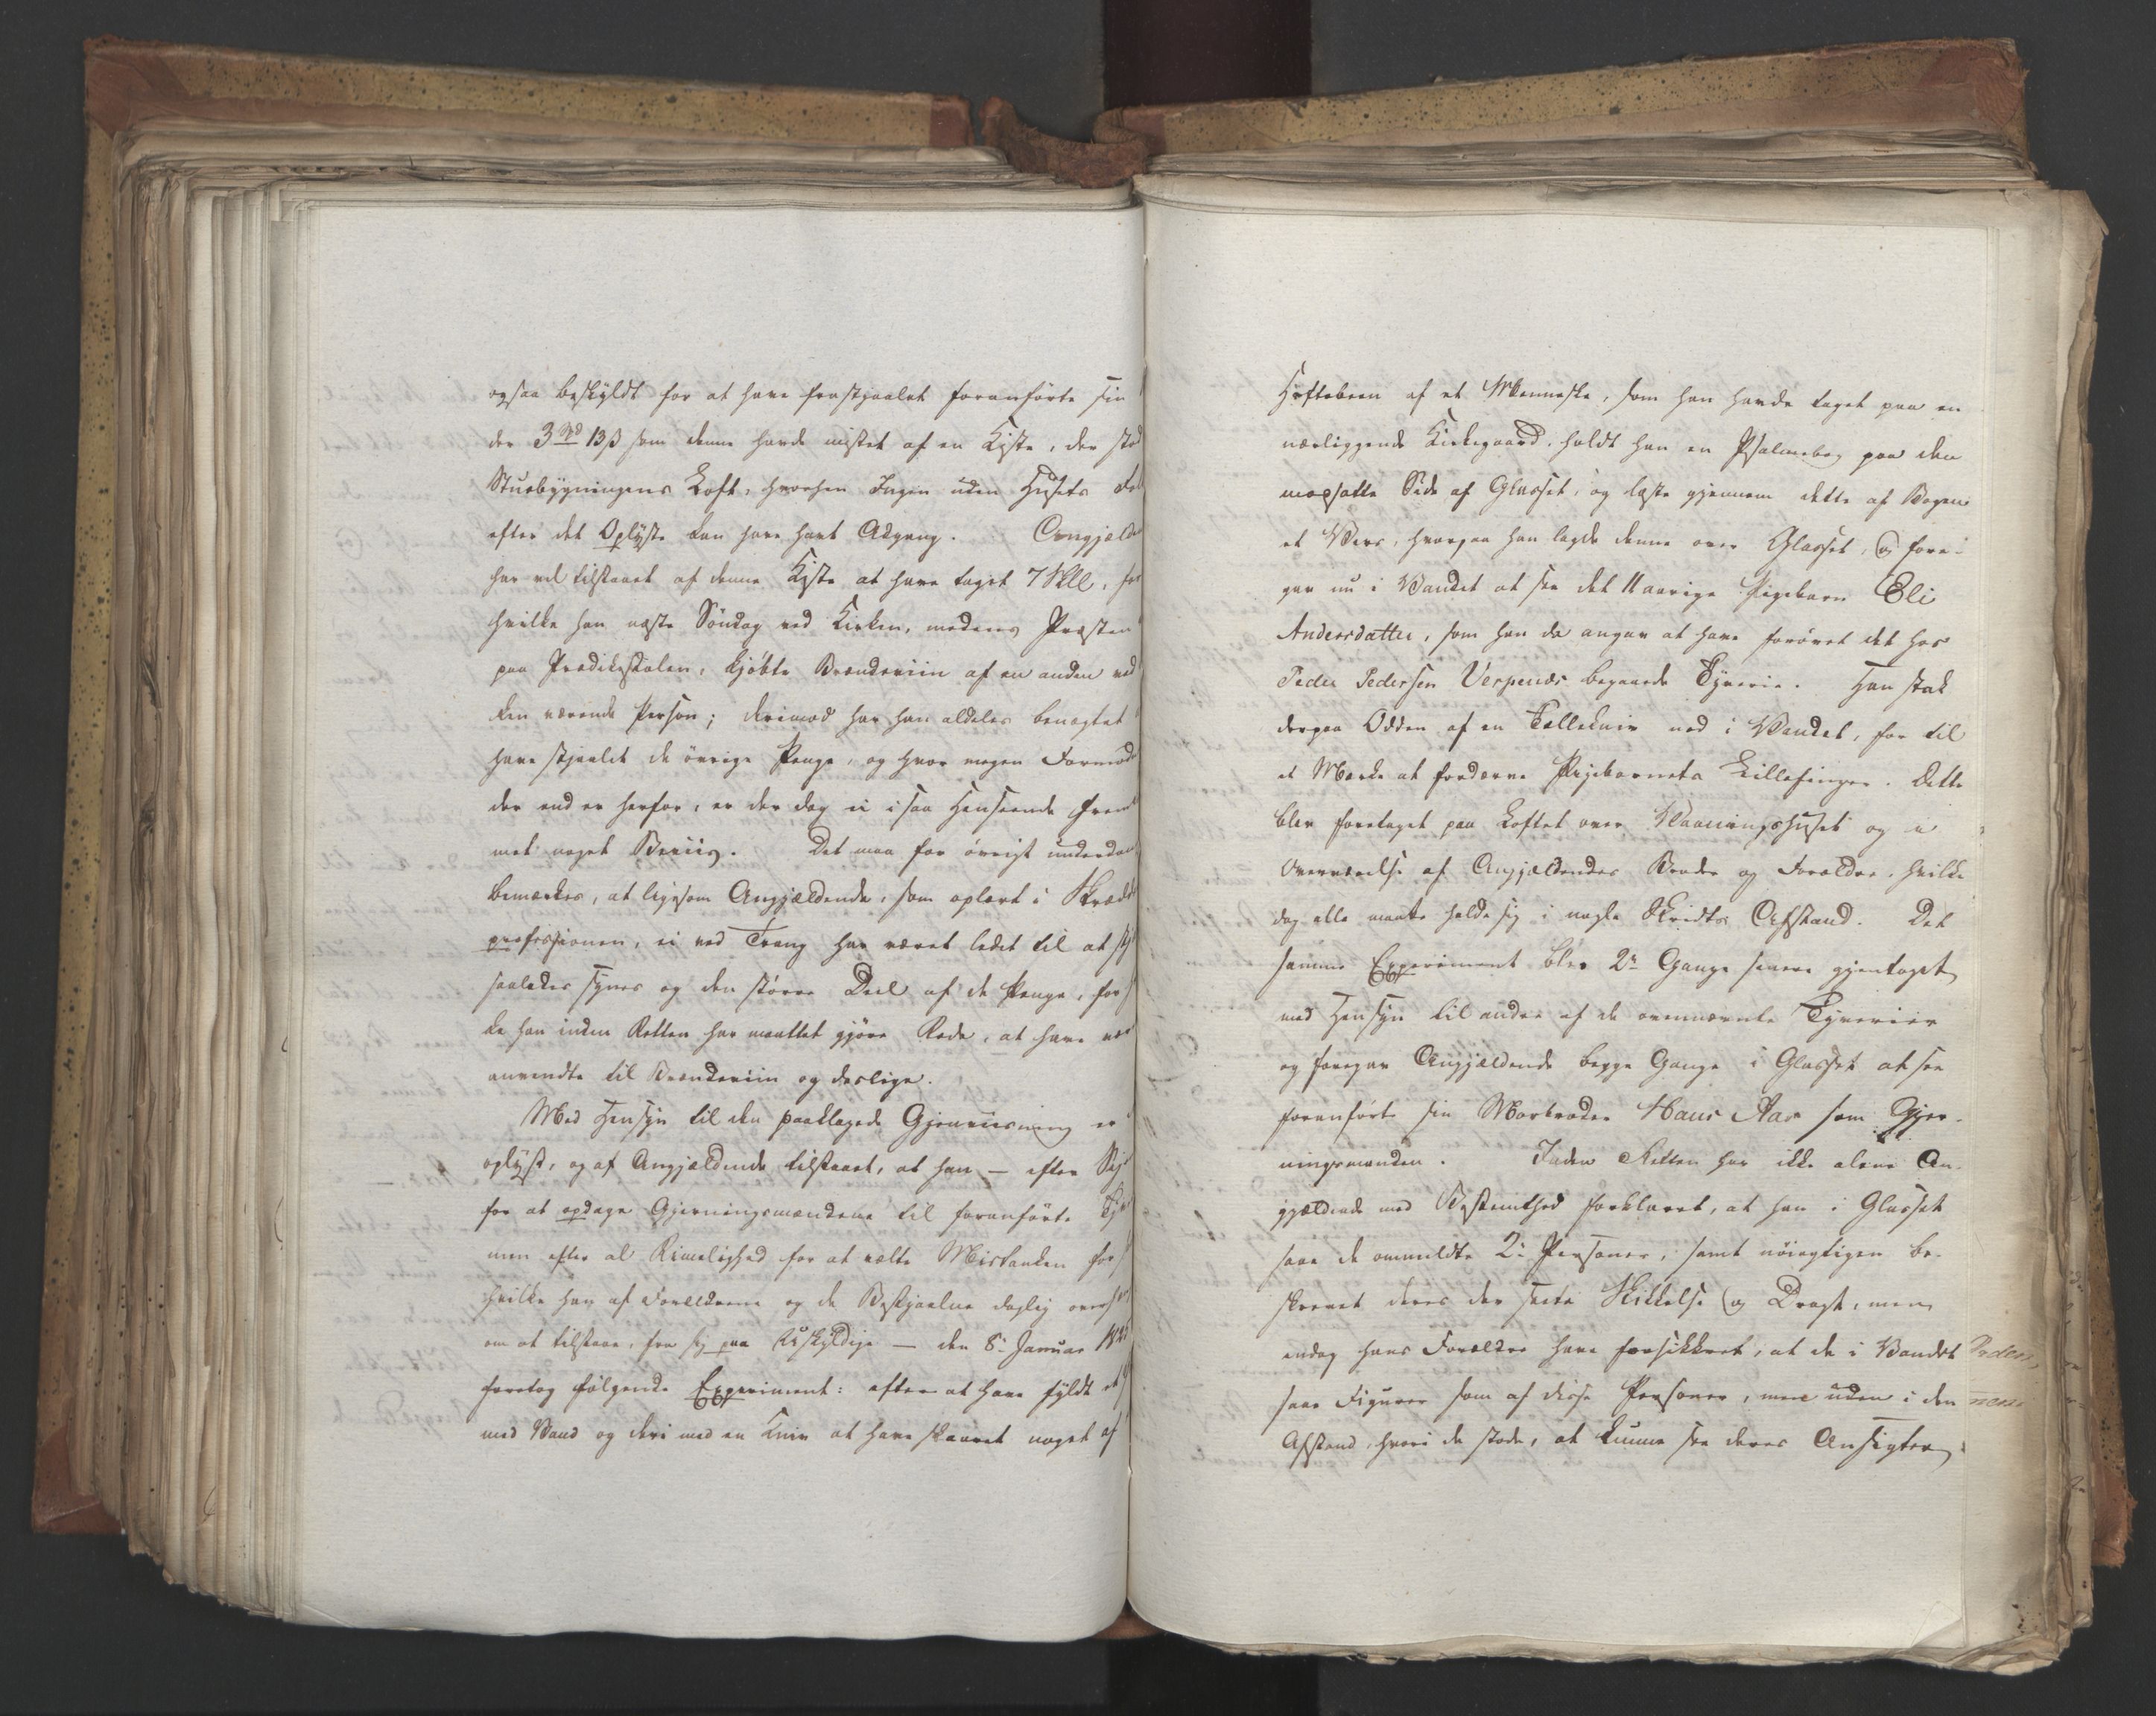 ogsaa beskyldt for at have frastjaalet foranförte sin
der 3 Spd 13 ß som denne havde mistet af en Kiste, der stod
Stuebygningens Loft, hvorhen Ingen uden Husets Fol
efter det Oplyste kan have havt Adgang. Angjelde
har vel tilstaaet af denne Kiste at have taget 7 Skll, for
hvilke han næste Söndag ved Kirken, medens Præsten
paa Prædikestolen, kjøbte Brændeviin af en anden ved
den værende Person; derimod har han aldeles benægtet
have stjaalet de övrige Penge, og hvor megen Formod
der end er herfor, er der dog ei i saa Henseende frem
met noget Beviis. Det maa for övrigt underdan
bemærkes, at ligesom Angjældende, som oplært i Skræd
professionen, ei ved Trang har været ledet til at stj
saaledes synes og den större Deel af de Penge, for
ke han inden Retten har maattet gjöre Rede, at have vær
anvendte til Brændeviin og deslige.
Med Hensyn til den paaklagede Gjenviisning er
oplyst, og af Angjældende tilstaaet, at han — efter Sig
for at opdage Gjerningsmændene til foranförte Ty
men efter al Rimelighed for at vælte Mistanken for
hvilke han af Forældrene og de Bestjaalne daglig overh
om at tilstaae, fra sig paa Uskyldige — den 8de Januar
foretog fölgende Experiment: efter at have fyldt et
med Vand og deri med en Kniv at have skaaret noget af
Hoftebeen af et Menneske, som han havde taget paa en
nærliggende Kirkegaard, holdt han en Psalmebog paa den
modsatte Side af Glasset, og læste gjennem dette af Bogen
et Vers, hvorpaa han lagde denne over Glasset, og fore-
gav nu i Vandet at see det 11 aarige Pigebarn Eli
Andersdatter, som han da angav at have forövet det hos
Peder Pedersen Verpenæs begaaede Tyverie. Han stak
derpaa Odden af en Tællekniv ned i Vandet, for til
et Mærke at fordærve Pigebarnets Lillefinger. Dette
blev foretaget paa Loftet over Vaaningshuset og i
Overværelse af Angjældendes Broder og Forældre, hvilke
dog alle maatte holde sig i nogle Skridts Afstand. Det
samme Experiment blev 2de Gange senere gjentaget
med Hensyn til andre af de ovennævnte Tyverier
og foregav Angjældende begge Gange i Glasset at see
foranförte sin Morbroder Hans Aas som Gjer-
ningsmanden. Inden Retten har ikke alene An-
gjældende med Bestemthed forklaret, at han i Glasset
saae de ommeldte 2de Personer, samt nöiagtigen be-
skrevet deres der seete Skikkelse og Dragt, men
endog hans Forældre have forsikkret, at de i Vandet
saae Figurer som af disse Personer, men uden i den
Afstand, hvori de stode, at kunne see deres Ansigter,